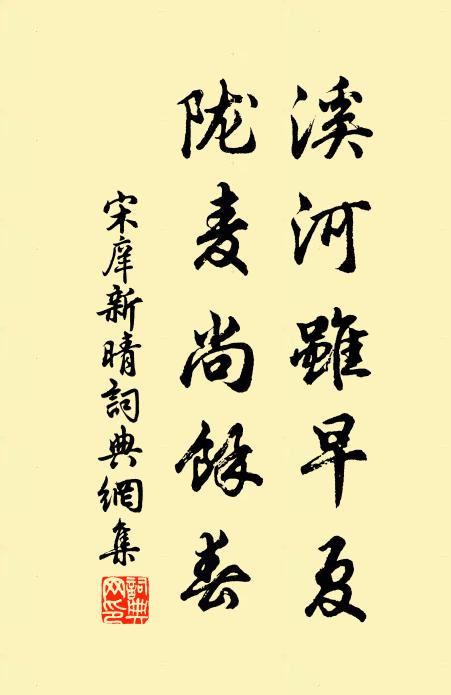 溪河雖早夏
陇麦尚餘春
宋庠新晴詞典網集
詞典网印